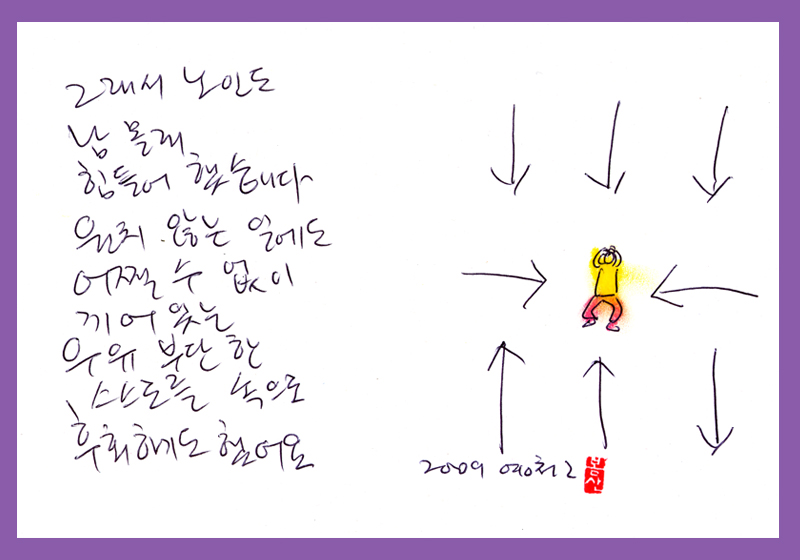 그래서 노인도
남 몰래
힘들어 했습니다
원치 않는 일에도
어쩔 수 없이
끼어 있는
우유 부단 한
스스로를 속으로
후회하기도 했어요
2009